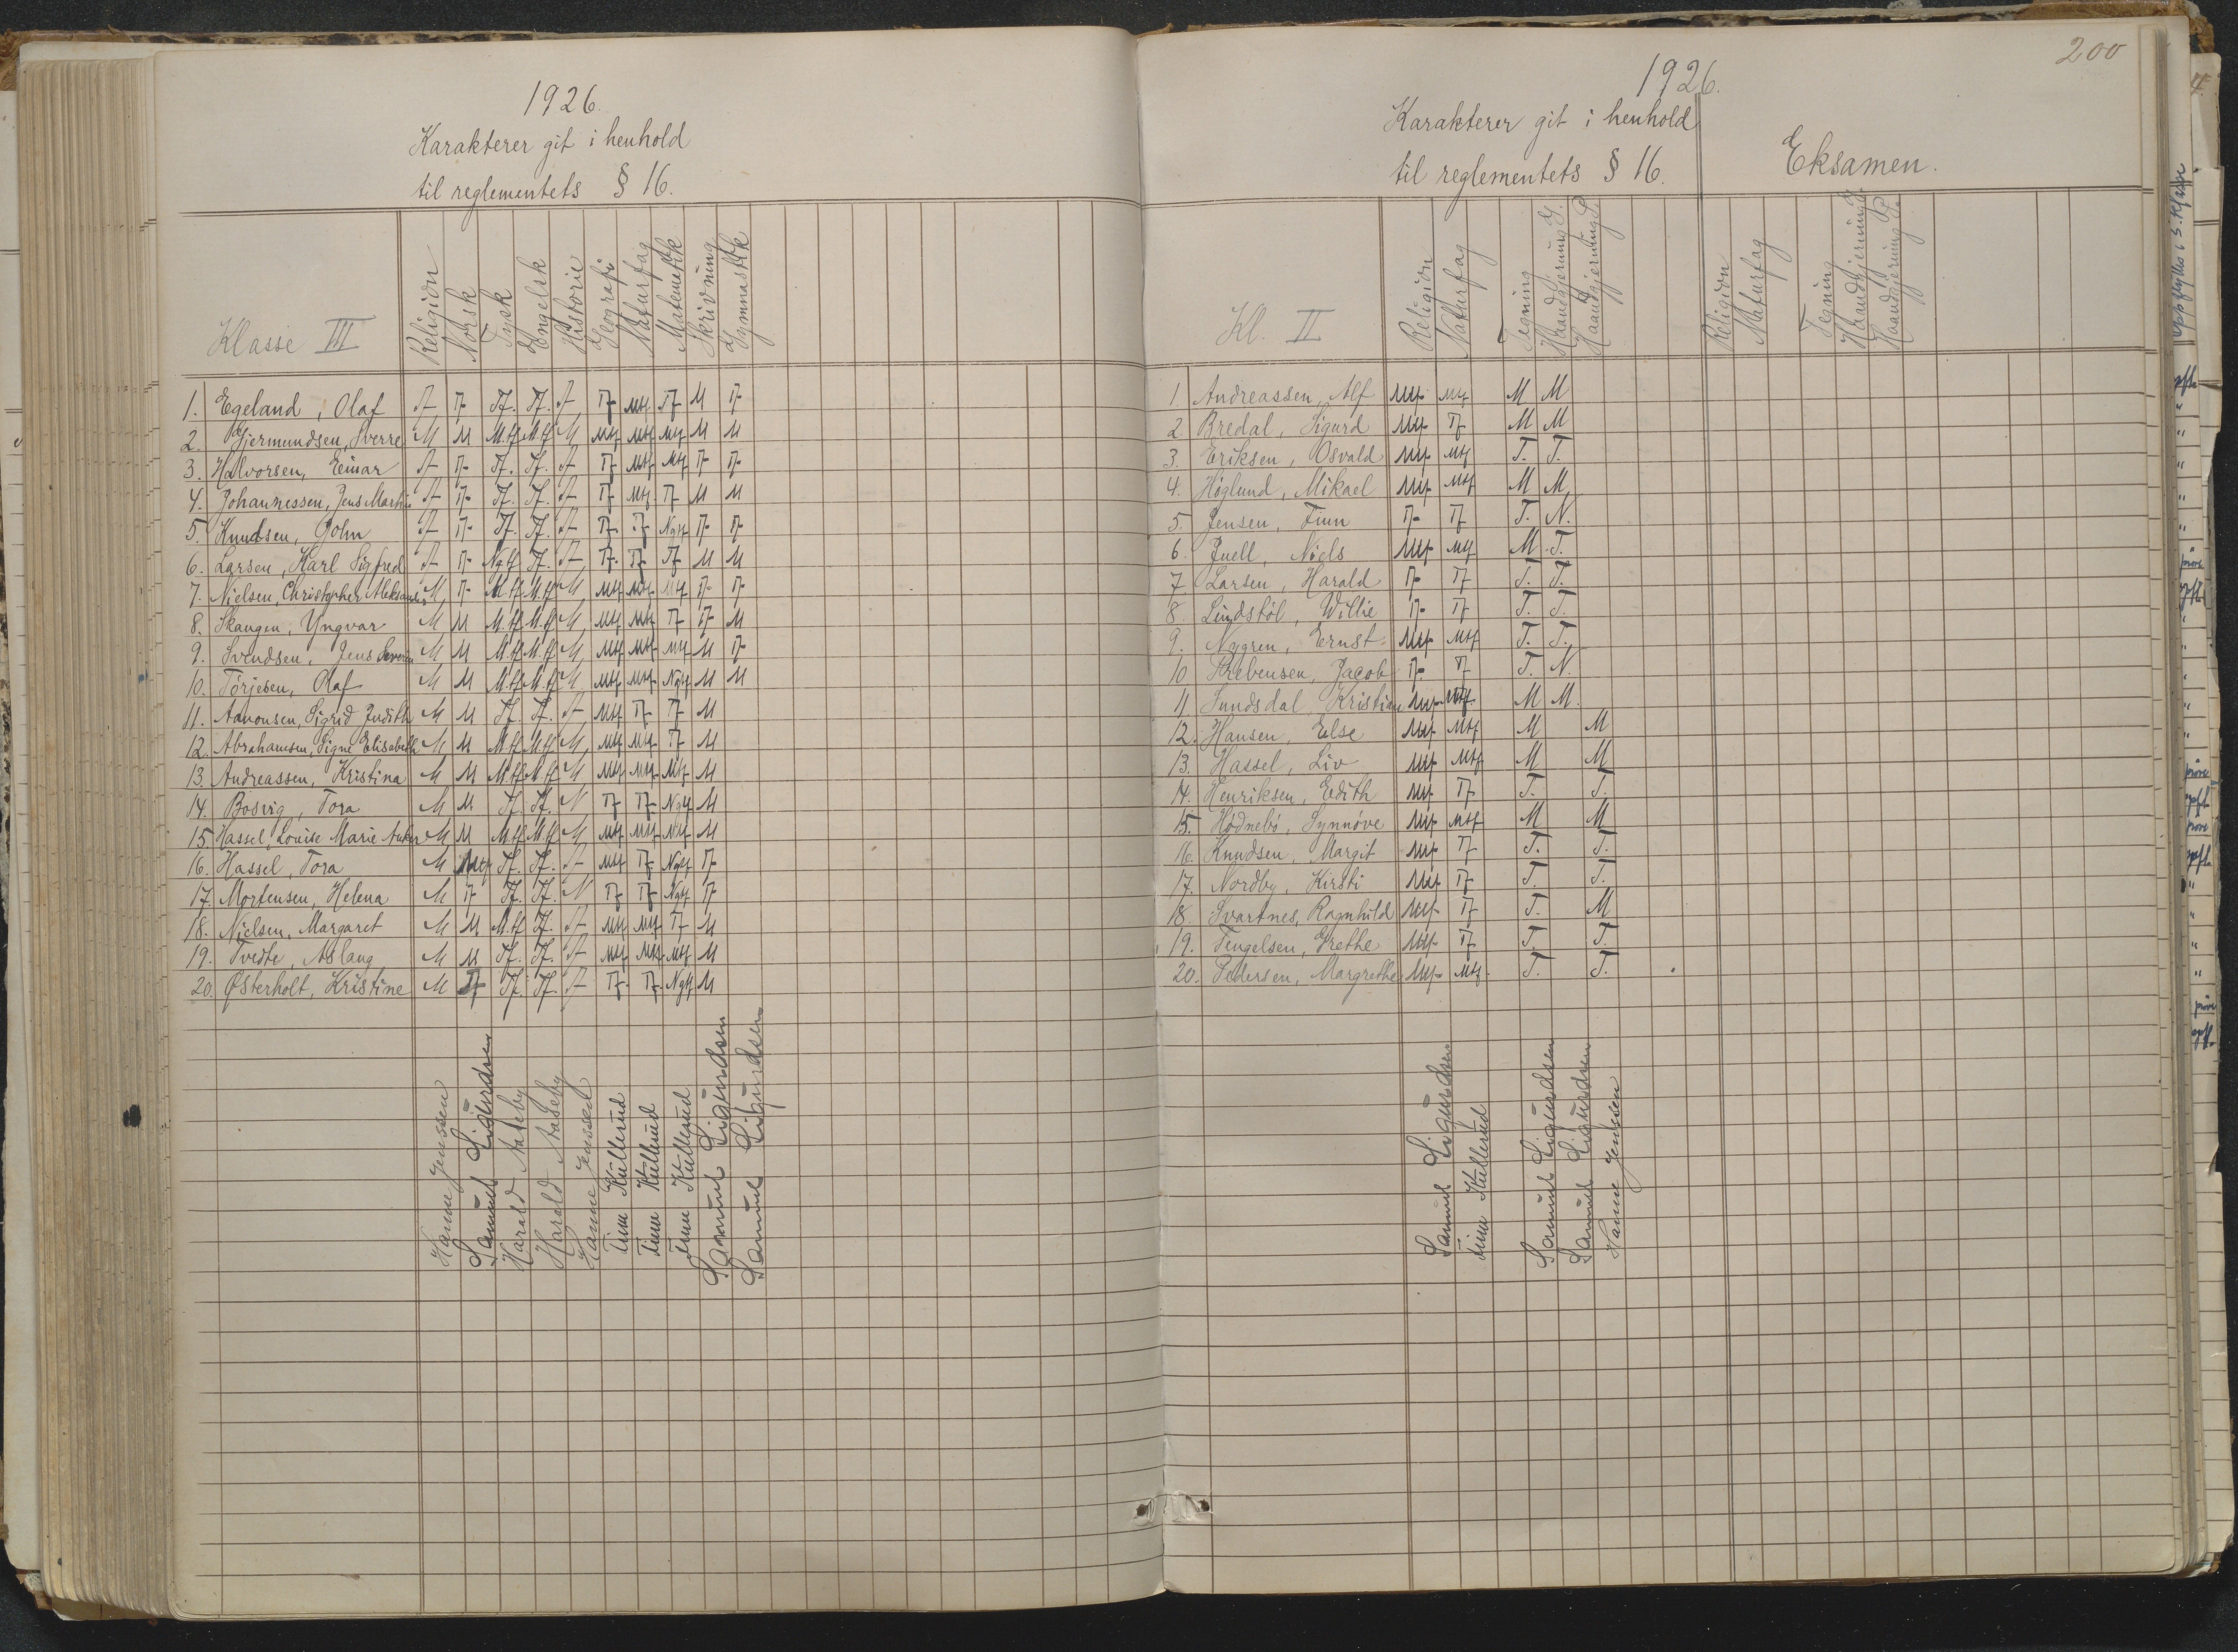 1926.
Karakterer git i henhold
til reglementets § 16.
Klasse III Religion Norsk Tysk Engelsk Historie Geografi Naturfag Matematikk Skrivning Gymnastikk
1. Egeland, Olaf T T Tf. Tf. T Tf Mtf. Tf M T
2. Gjermundsen, Sverre M M M.tf M.tf M Mtf Mtf Mtf M M
3. Halvorsen, Einar T T Tf. Tf. T Tf Mtf Mtf T T
4. Johannessen, Jens Martin T T Tf. Tf. T Tf Mtf. Tf M M
5. Knudsen, John T T Tf. Tf. T Tf Tf Ngtf T T
6. Larsen, Karl Sigfred T T Ngtf Tf. T Tf Tf Tf M M
7. Nielsen, Christopher Aleksander M T M.tf M.tf M Mtf Mtf Mtf T T
8. Skaugen, Yngvar M M M.tf M.tf M Mtf Mtf Tf T M
9. Svendsen, Jens Severin M M M.tf M.tf M Mtf Mtf Mtf M T
10. Törjesen, Olaf M M M.tf M.tf M Mtf Mtf Ngtf M M
11. Aanonsen, Sigrid Judith M M Tf. Tf. T Mtf Tf Tf M
12. Abrahamsen, Signe Elisabeth M M M.tf M.tf M Mtf Mtf Tf M
13. Andreassen, Kristina M M M.tf M.tf M Mtf Mtf Mtf M
14. Bosvig, Tora M M Tf. Tf. N Tf Tf Ngtf M
15. Hassel, Louise Marie Anker M M M.tf M.tf M Mtf Mtf Mtf M
16. Hassel, Tora M Mtf Tf. Tf. T Mtf Tf Ngtf T
17. Mortensen, Helena M T Tf. Tf. N Tf Tf Ngtf T
18. Nielsen, Margaret M M M.tf Tf. T Mtf Mtf Tf M
19. Tveite, Aslaug M M Tf. Tf. T Mtf Mtf Mtf M
20. Østerholt, Kristine M T Tf. Tf. T Tf Tf Ngtf M
Hanne Jenssen
Samuel Sigurdsen
Harald Aaseby
Harald Aaseby
Hanne Jenssen
Finn Kullerud
Finn Kullerud
Finn Kullerud
Samuel Sigurdsen
Samuel Sigurdsen
200
1926.
Karakterer git i henhold
til reglementets § 16.
Eksamen.
Kl. II Religion Naturfag Tegning Haandgjerning G. Haandgjerning P. Religion Naturfag Tegning Haandgjerning G. Haandgjerning P.
1. Andreassen, Alf Mtf Mtf M M
2. Bredal, Sigurd Mtf Tf M M
3. Eriksen, Osvald Mtf Mtf T. T.
4. Höglund, Mikael Mtf Mtf M M
5. Jensen, Finn Tf Tf T. N.
6. Juell, Niels Mtf Mtf M T.
7. Larsen, Harald Tf Tf T. T.
8. Lindstöl, Willie Tf Tf T. T.
9. Nygren, Ernst Mtf Mtf T. T.
10. Prebensen, Jacob Tf Tf T. N.
11. Sundsdal, Kristian Mtf Mtf M M.
12. Hansen, Else Mtf Mtf M M
13. Hassel, Liv Mtf Mtf M M
14. Henriksen, Edith Mtf Tf T. T.
15. Hödnebö, Synnöve Mtf Mtf M M
16. Knudsen, Margit Mtf Tf T. T.
17. Nordby, Kirsti Mtf Tf T. T.
18. Svartnes, Ragnhild Mtf Tf T. M
19. Tengelsen, Grethe Mtf Tf T. T.
20. Pedersen, Margrethe Mtf Mtf T. T.
Samuel Sigurdsen
Finn Kullerud
Samuel Sigurdsen
Samuel Sigurdsen
Hanne Jenssen